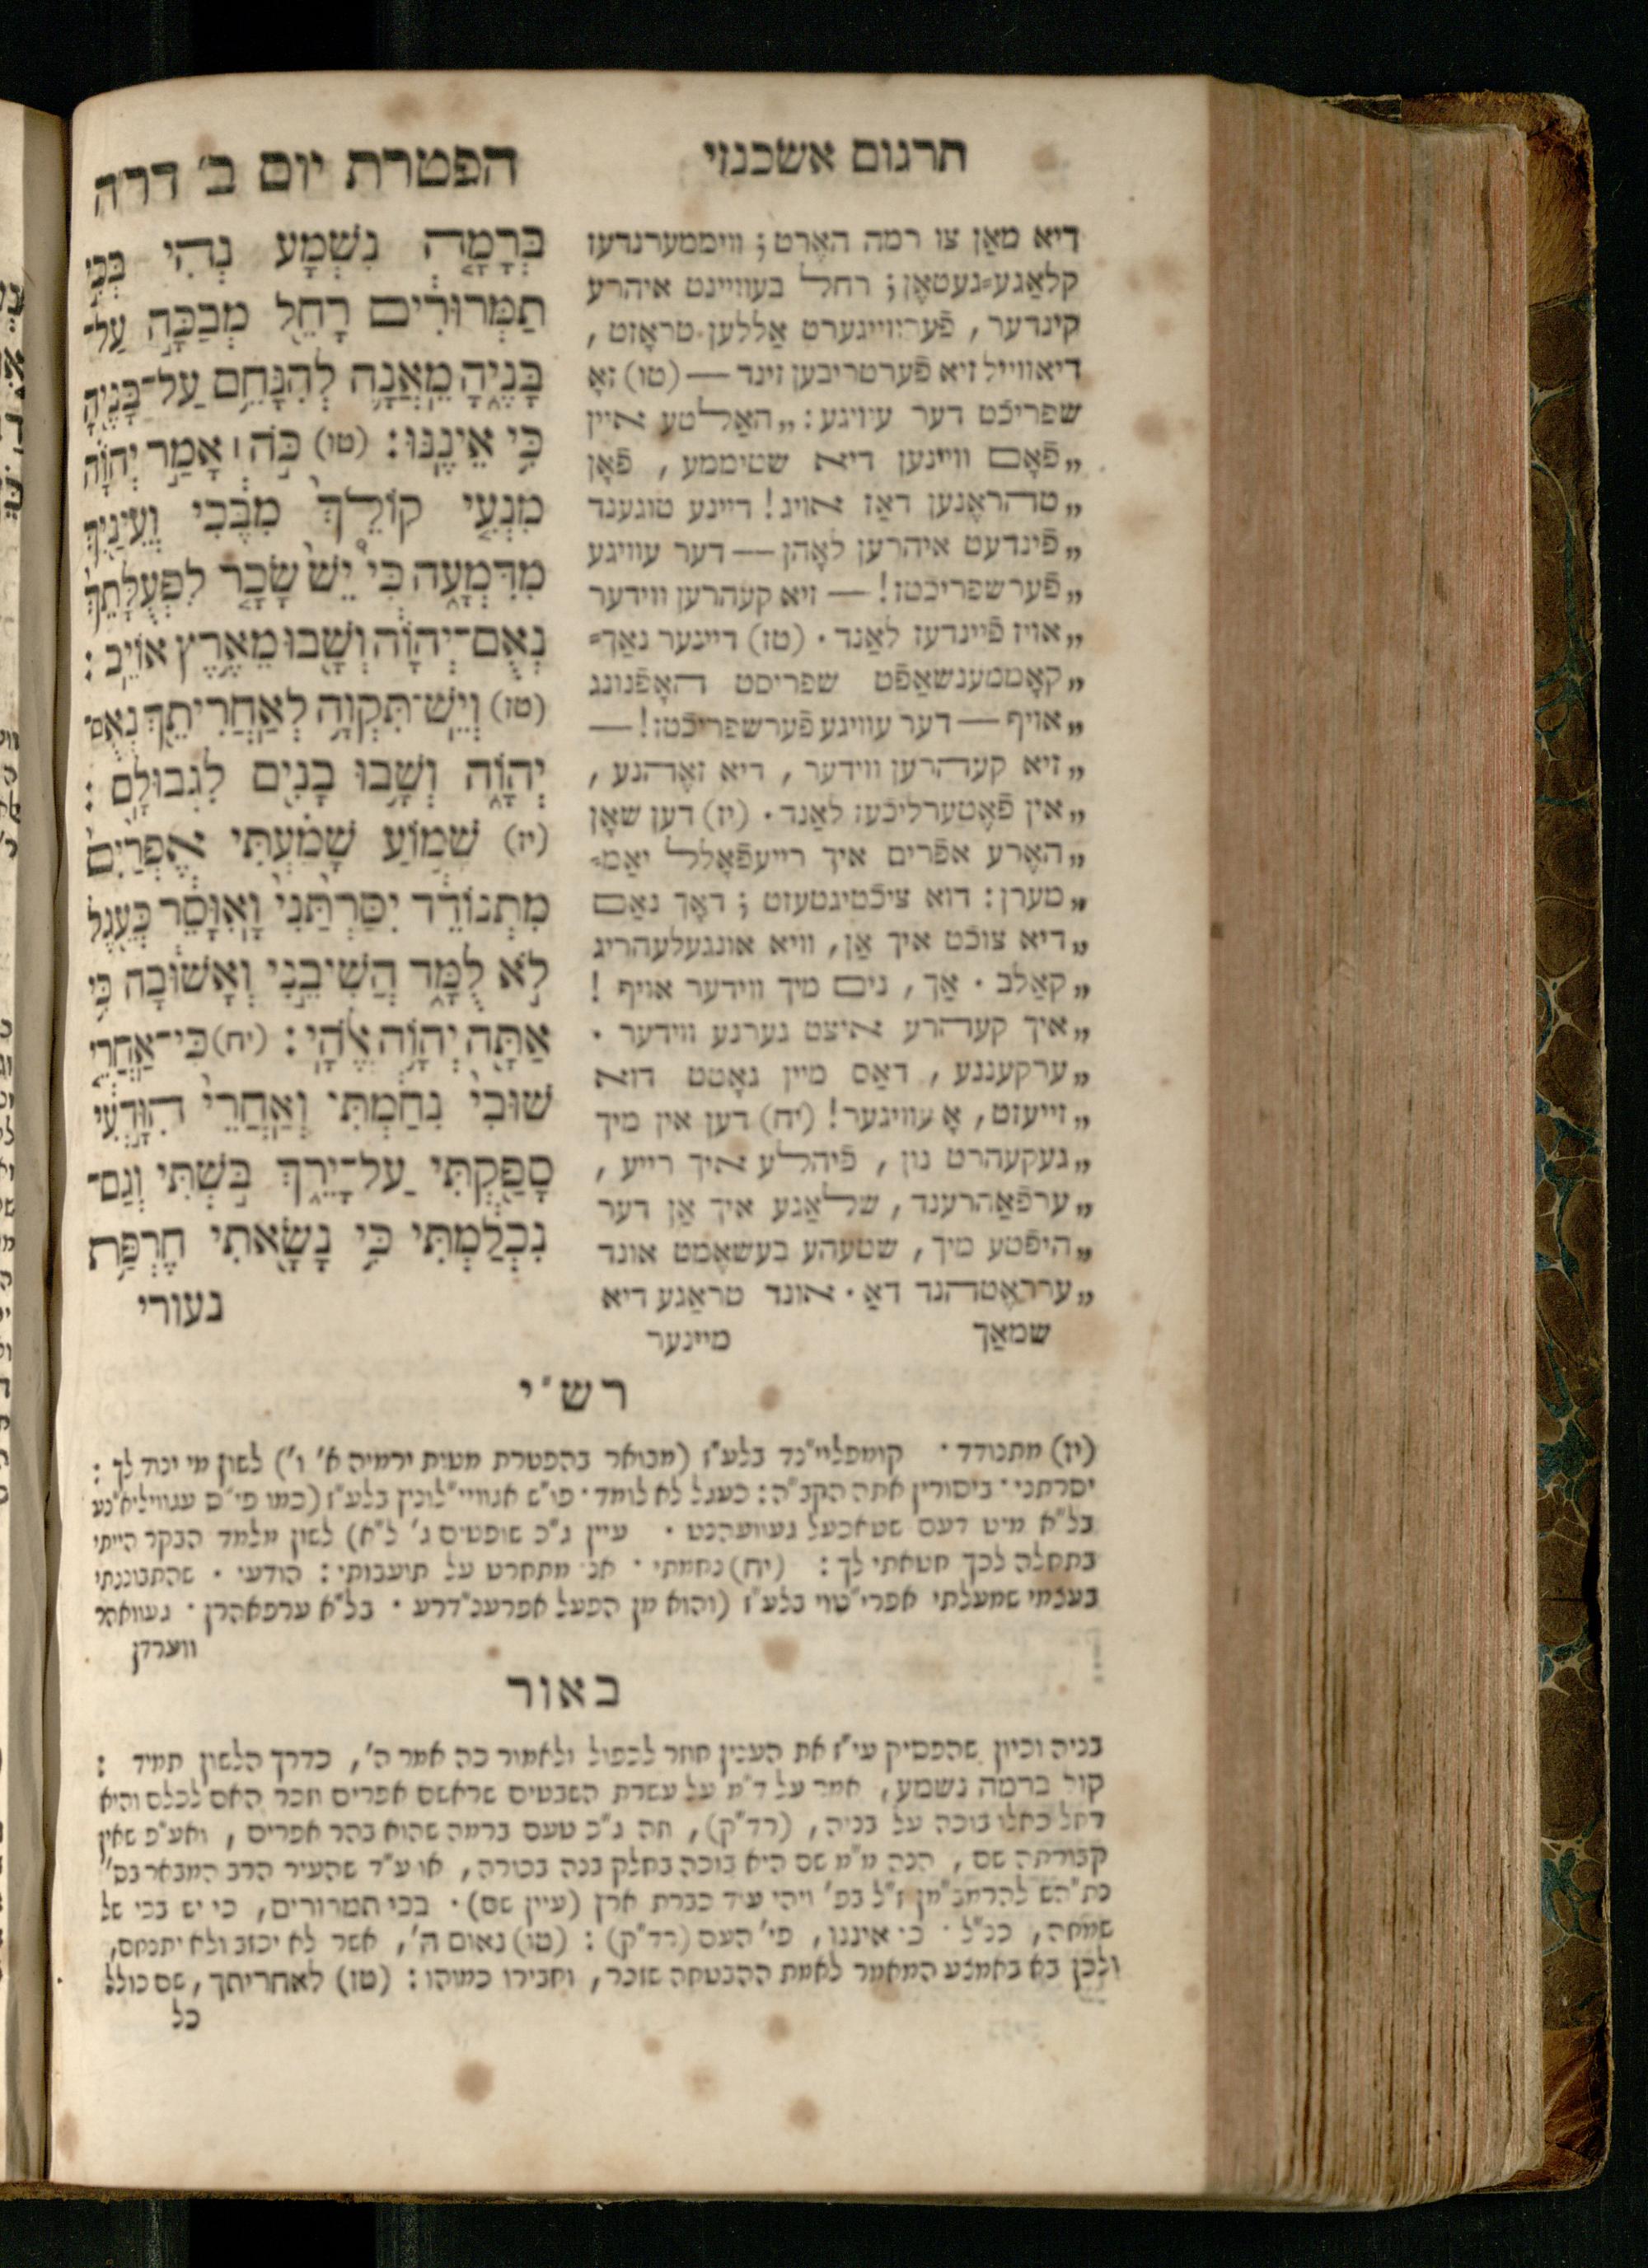 תרגום אשכנזי
הפטרת יום ב׳ דר״ה
דיא מאַן צו רמה האֶרט; ווימטערנדעז
קלאַגע=געטאֶן; רחל בעוויינט איהרע
קינדער, פֿערווייגערט אַללען טראָזט,
דיאווייל זיא פֿערטריבען זינד — (טו) זאָ
שפריכֿט דער עוויגע: „האַלטע איין
„פֿאָם וויינען דיא שטיממע, פֿאָן
„טהראֶנען דאַז אויג! דיינע טוגענד
„פֿינדעט איהרען לאָהן — דער עוויגע
„פֿערשפריכֿטז! — זיא קעהרען ווידער
„אויז פֿיינדעז לאַנד. (טז) דיינער נאַך=
„קאָממענשאַפֿט שפריסט האָפֿנונג
„אויף — דער עוויגע פֿערשפריכֿטז! —
„זיא קעהרען ווידער, דיא זאֶהנע,
„אין פֿאֶטערליכֿעז לאַנד. (יז) דען שאָן
„האֶרע אפרים איך רייעפֿאָלל יאַמ=
„מערן: דוא ציכֿטיגטעזט; דאָך נאַם
„דיא צוכֿט איך אַן, וויא אונגעלעהריג
„קאַלב. אַך, נים מיך ווידער אויף!
„איך קעהרע איצט גערנע ווידער.
„ערקעננע, דאַס מיין גאָטט דוא
„זייעזט, אָ עוויגער! (יח) דען אין מיך
„געקעהרט נון, פֿיהלע איך רייע,
„ערפֿאַהרענד, שלאַגע איך אַן דער
„היפֿטע מיך, שטעהע בעשאֶמט אונד
„ערראֶטהנד דאַ. אונד טראַגע דיא
שמאַך מיינער
בְּרָמָ֤ה נִשְׁמָע֙ נְהִי֙ בְּכִ֣י
תַמְרוּרִ֔ים רָחֵ֖ל מְבַכָּ֣ה עַל־
בָּנֶ֑יהָ מֵאֲנָ֛ה לְהִנָּחֵ֥ם עַל־בָּנֶ֖יהָ
כִּ֥י אֵינֶֽנּוּ׃ (טו) כֹּ֣ה ׀ אָמַ֣ר יְהוָ֗ה
מִנְעִ֤י קוֹלֵךְ֙ מִבֶּ֔כִי וְעֵינַ֖יִךְ
מִדִּמְעָ֑ה כִּי֩ יֵ֨שׁ שָׂכָ֤ר לִפְעֻלָּתֵךְ֙
נְאֻם־יְהוָ֔ה וְשָׁ֖בוּ מֵאֶ֥רֶץ אוֹיֵֽב׃
(טז) וְיֵשׁ־תִּקְוָ֥ה לְאַחֲרִיתֵ֖ךְ נְאֻם־
יְהוָ֑ה וְשָׁ֥בוּ בָנִ֖ים לִגְבוּלָֽם׃
(יז) שָׁמ֣וֹעַ שָׁמַ֗עְתִּי אֶפְרַ֙יִם֙
מִתְנוֹדֵ֔ד יִסַּרְתַּ֙נִי֙ וָֽאִוָּסֵ֔ר כְּעֵ֖גֶל
לֹ֣א לֻמָּ֑ד הֲשִׁיבֵ֣נִי וְאָשׁ֔וּבָה כִּ֥י
אַתָּ֖ה יְהוָ֥ה אֱלֹהָֽי׃ (יח) כִּֽי־אַחֲרֵ֤י
שׁוּבִי֙ נִחַ֔מְתִּי וְאַֽחֲרֵי֙ הִוָּ֣דְעִ֔י
סָפַ֖קְתִּי עַל־יָרֵ֑ךְ בֹּ֚שְׁתִּי וְגַם־
נִכְלַ֔מְתִּי כִּ֥י נָשָׂ֖אתִי חֶרְפַּ֥ת
נעורי
רש״י
(יז) מתנודד. קומפליי״נד בלע״ז (מבואר בהפטרת מטות ירמיה א׳ ו׳) לשון מי ינוד לך:
יסרתני. ביסורין אתה הקב״ה: כעגל לא לומד. פו״ש אגוויי״לונין בלע״ז (כמו פי״ם עגוויליא״נע
בל״א מיט דעם שטאכעל געוועהנט. עיין ג״כ שופטים ג׳ ל״א) לשון מלמד הבקר הייתי
בתחלה לכך חטאתי לך: (יח) נחמתי. אני מתחרט על תועבותי: הודעי. שהתבוננתי
בעצמי שמעלתי אפרי״טוי בלע״ז (והוא מן הפעל אפרענ״דרע. בל״א ערפאהרן. געוואהר
ווערדן
באור
בניה וכיון שהפסיק עי״ז את הענין חוזר לכפול ולאמור כה אמר ה׳, כדרך הלשון תמיד:
קול ברמה נשמע, אמר על ד״מ על עשרת השבטים שראשם אפרים וזכר האם לכלם והיא
רחל כאלו בוכה על בניה, (רד״ק), וזה ג״כ טעם ברמה שהוא בהר אפרים, ואע״פ שאין
קבורתה שם, הנה מ״מ שם היא בוכה בחלק בנה בכורה, או ע״ד שהעיר הרב המבאר בס׳
כת״הש להרמב״מן ז״ל בפ׳ ויהי עוד כברת ארץ (עיין שם). בכי תמרורים, כי יש בכי של
שמחה, כנ״ל. כי איננו, פי׳ העם (רד״ק): (טו) נאום ה׳, אשר לא יכזב ולא יתנחם,
ולכן בא באמצע המאמר לאמת ההבטחה שזכר, וחבירו כמוהו: (טז) לאחריתך, שם כולל
כל